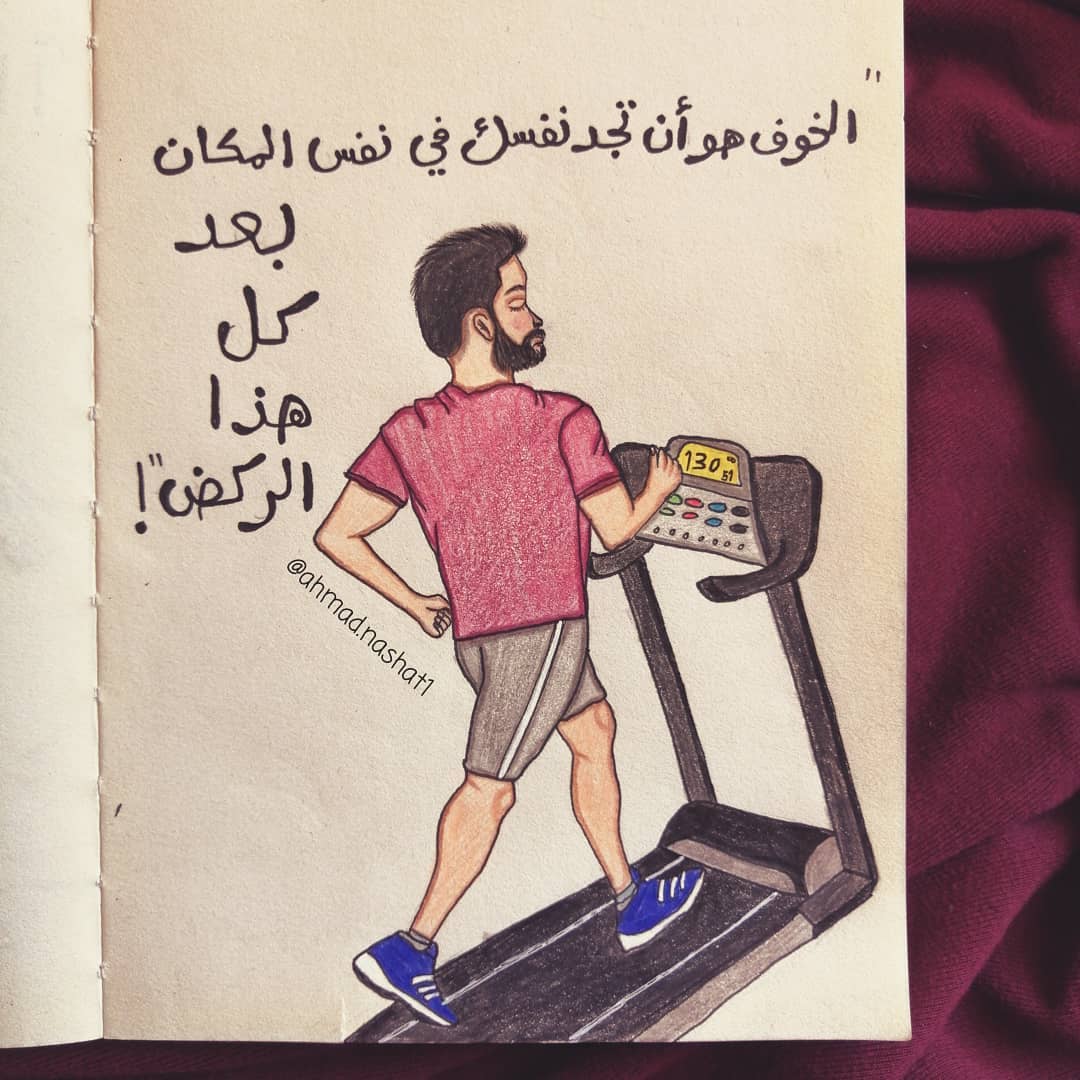 "الخوف هو أن تجد نفسك في نفس المكان
بعد
كل
هذا
الركض"!
130
51
@ahmad.nashat1